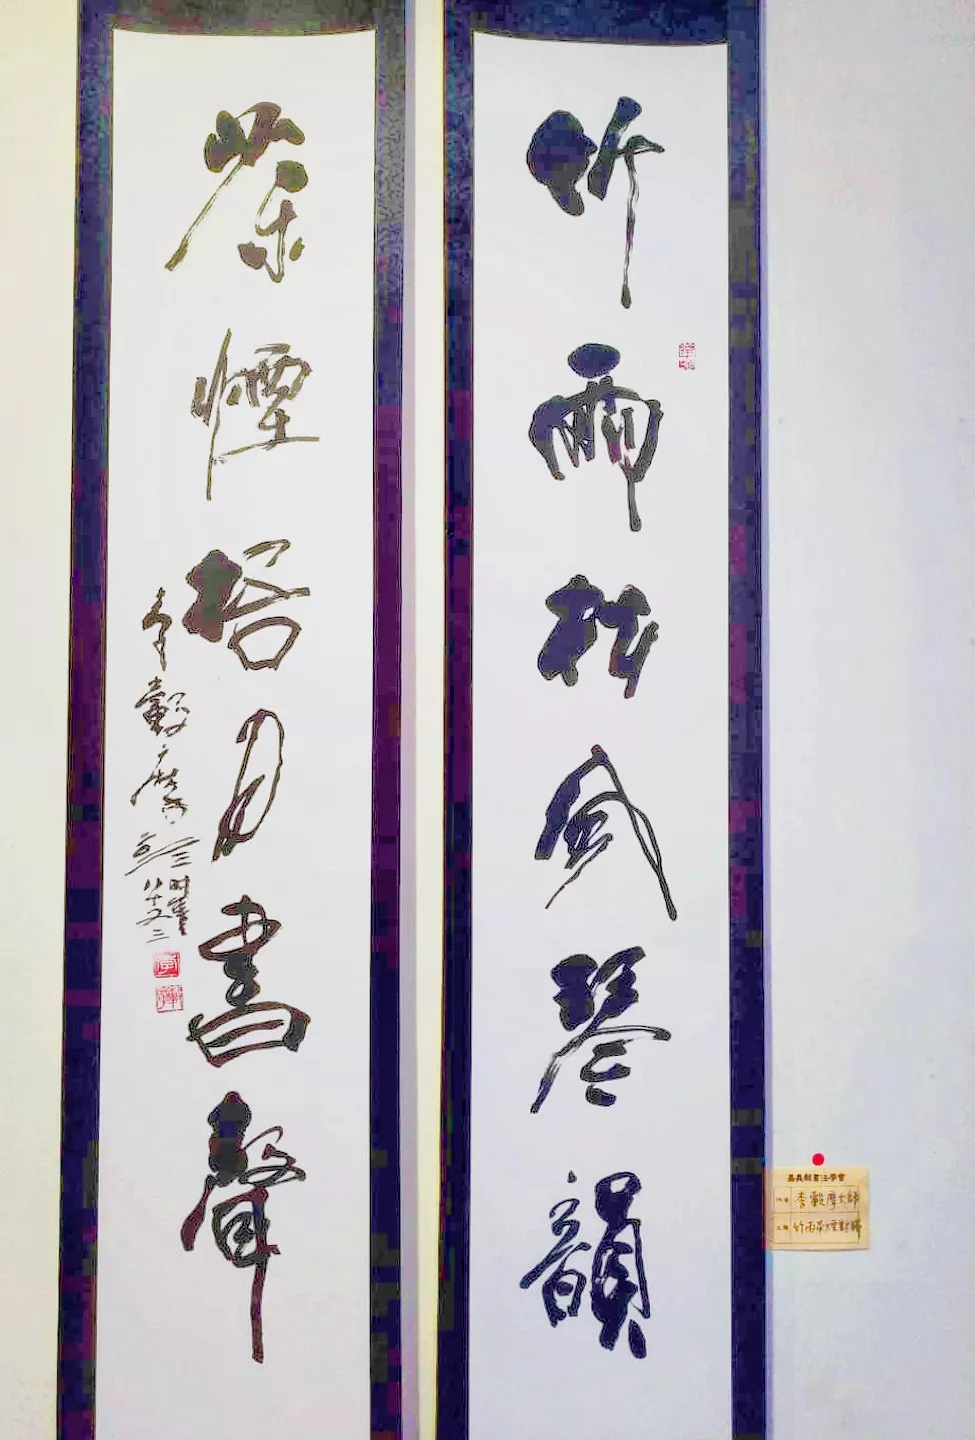 竹雨松風琴韻
茶煙梧月書聲
李轂摩
八十又三
嘉義縣書法學會
李轂摩大師
竹雨茶煙對聯